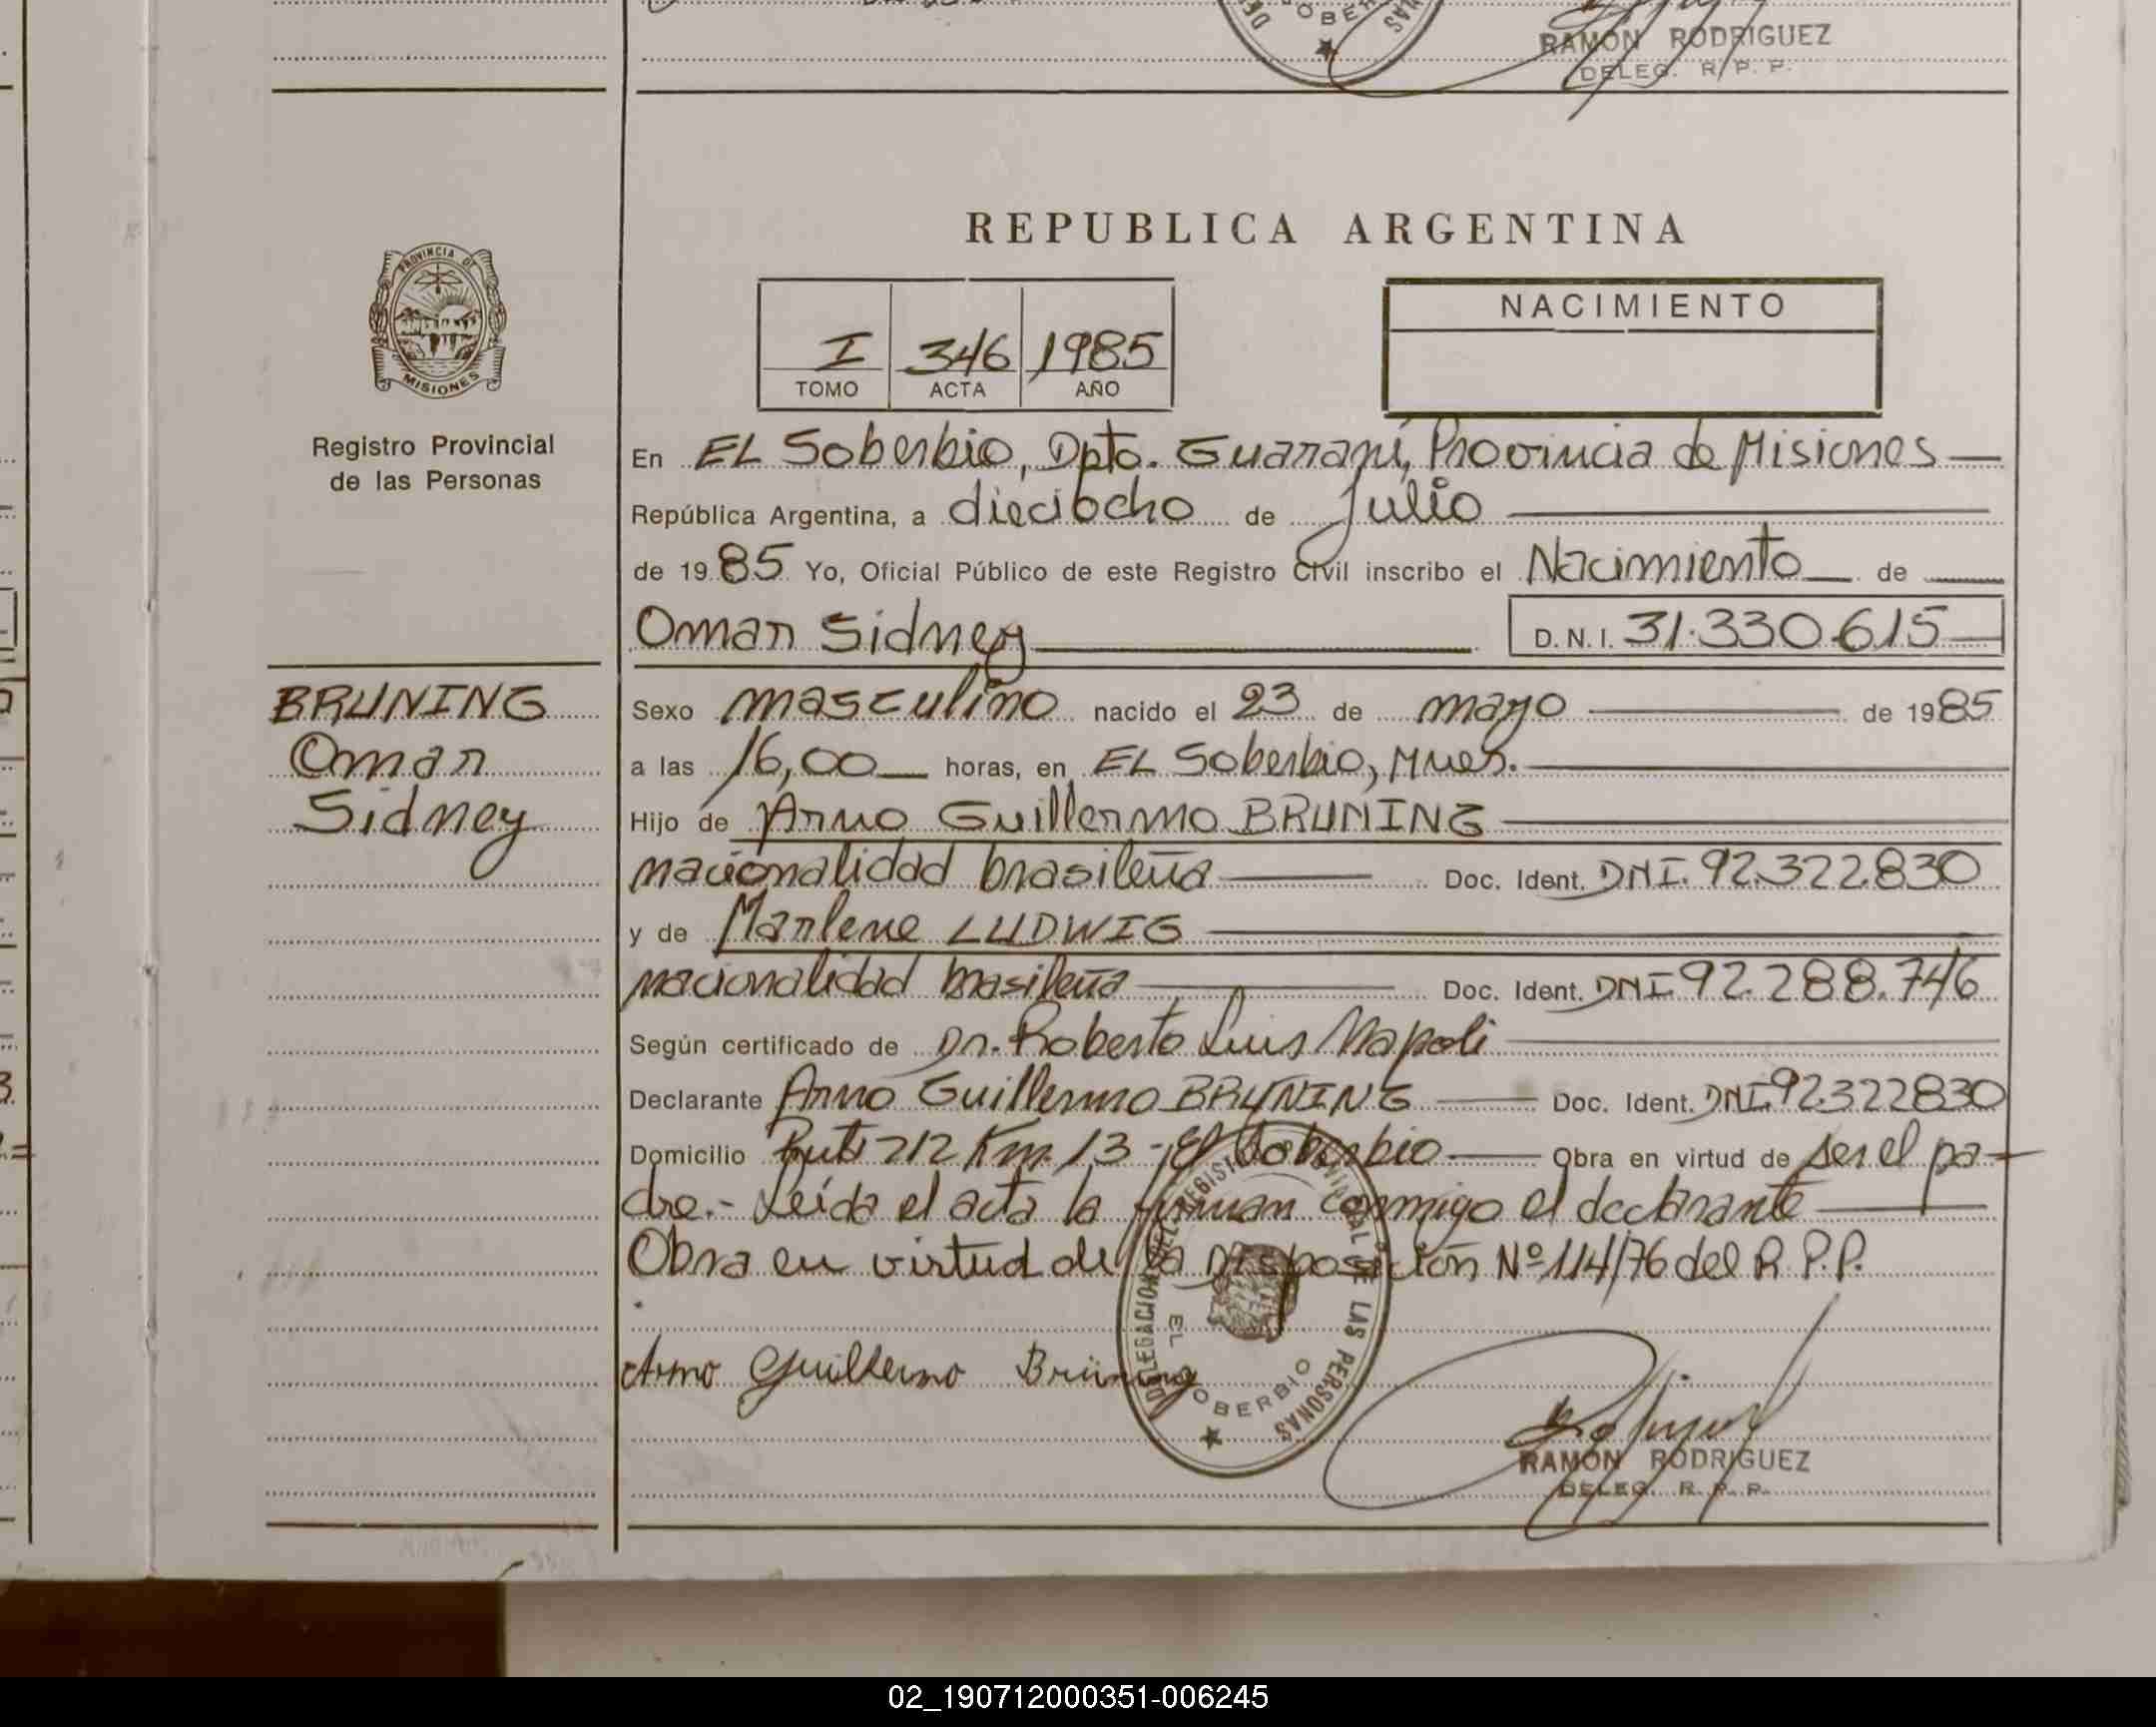 RAMON RODRIGUEZ
DELEG. R. P. P.
REPUBLICA ARGENTINA
PROVINCIA DE
MISIONES
Registro Provincial
de las Personas
I 346 1985
TOMO ACTA AÑO
NACIMIENTO
En EL Soberbio, Dpto. Guarani, Provincia de Misiones
República Argentina, a dieciocho de Julio
de 1985 Yo, Oficial Público de este Registro Civil inscribo el Nacimiento de
Omar Sidney D.N.I. 31.330.615
BRUNING
Omar
Sidney
Sexo masculino nacido el 23 de mayo de 1985
a las 16,00 horas, en EL Soberbio, Mnes.
Hijo de Arno Guillermo BRUNING
nacionalidad brasileña Doc. Ident. DNI. 92.322.830
y de Marlene LUDWIG
nacionalidad brasileña Doc. Ident. DNI 92.288.746
Según certificado de Dr. Roberto Luis Napoli
Declarante Arno Guillermo BRUNING Doc. Ident. DNI. 92.322830
Domicilio Ruta 212 Km. 13 - El Soberbio Obra en virtud de ser el pa-
dre.- Leída el acta la firman conmigo el declarante
Obra en virtud de la Disposición Nº 114/76 del R.P.P.
Arno Guillermo Brüning
DELEGACION DEL REGISTRO PROVINCIAL DE LAS PERSONAS
EL SOBERBIO
RAMON RODRIGUEZ
DELEG. R. P. P.
02_190712000351-006245